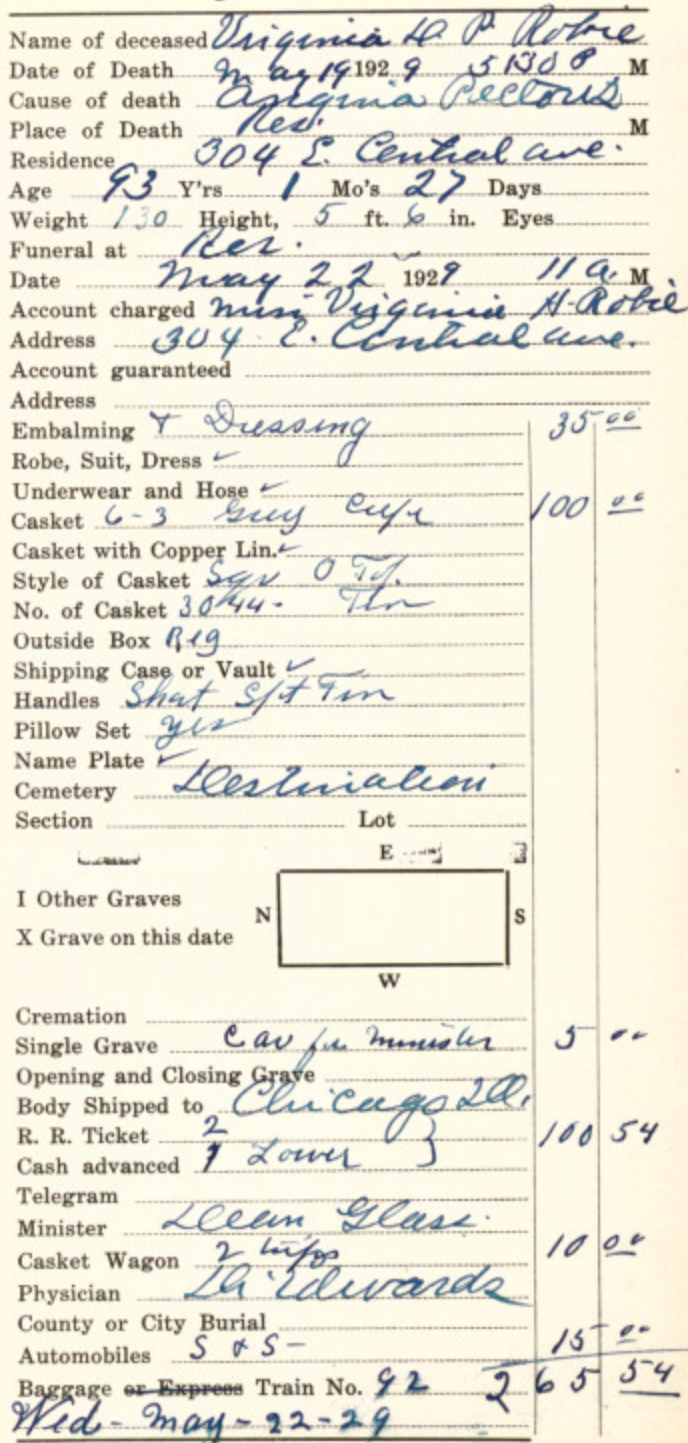 Name of deceased Virginia H. P. Robie
Date of Death May 19 1929 5:30 P M
Cause of death Angina Pectoris
Place of Death Res. M
Residence 304 E. Central ave.
Age 93 Y'rs 1 Mo's 27 Days
Weight 130 Height, 5 ft. 6 in. Eyes
Funeral at Res.
Date May 22 1929 11 a. M
Account charged Miss Virginia H Robie
Address 304 E. Central ave.
Account guaranteed
Address
Embalming & Dressing 35 00
Robe, Suit, Dress ✓
Underwear and Hose ✓
Casket 6-3 Grey 100 00
Casket with Copper Lin. ✓
Style of Casket Sqr O
No. of Casket 3044-
Outside Box Reg
Shipping Case or Vault ✓
Handles Short
Pillow Set yes
Name Plate ✓
Cemetery Destination
Section Lot
E
I Other Graves
N S
X Grave on this date
W
Cremation
Single Grave Car for minister 5 00
Opening and Closing Grave
Body Shipped to Chicago Ill.
R. R. Ticket 2 } 100 54
Cash advanced 1 Lower
Telegram
Minister Dean Glass.
Casket Wagon 2 trips 10 00
Physician Dr Edwards
County or City Burial
Automobiles S & S - 15 00
Baggage or Express Train No. 92 265 54
Wed - May - 22 - 29